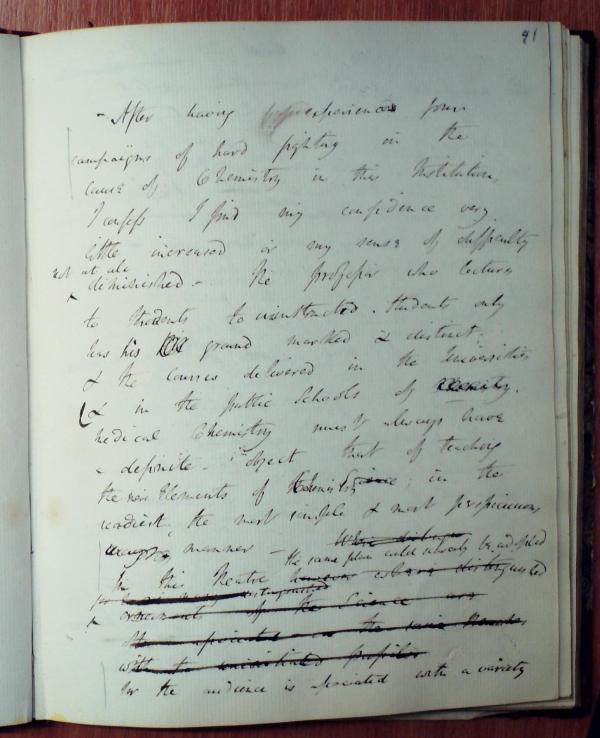 91
- After having experienced four
campaigns of hard fighting in the
cause of Chemistry in this Institution,
I confess I find my confidence very
little increased or my sense of difficulty
not at all
diminished - The professor who lectures
to Students to uninstructed Students only
has his ground marked & distinct.
& the courses delivered in the Universities
& in the public Schools of
medical Chemistry must always have
a definite object that of teaching
the Elements of Chemistry Science; in the
readiest, the most simple & most perspicuous
manner -
the same plan could scarcely be adopted
In this Theatre distinguished
ornaments of the Science are
with the uninitiated pupils
for the audience is associated with a variety